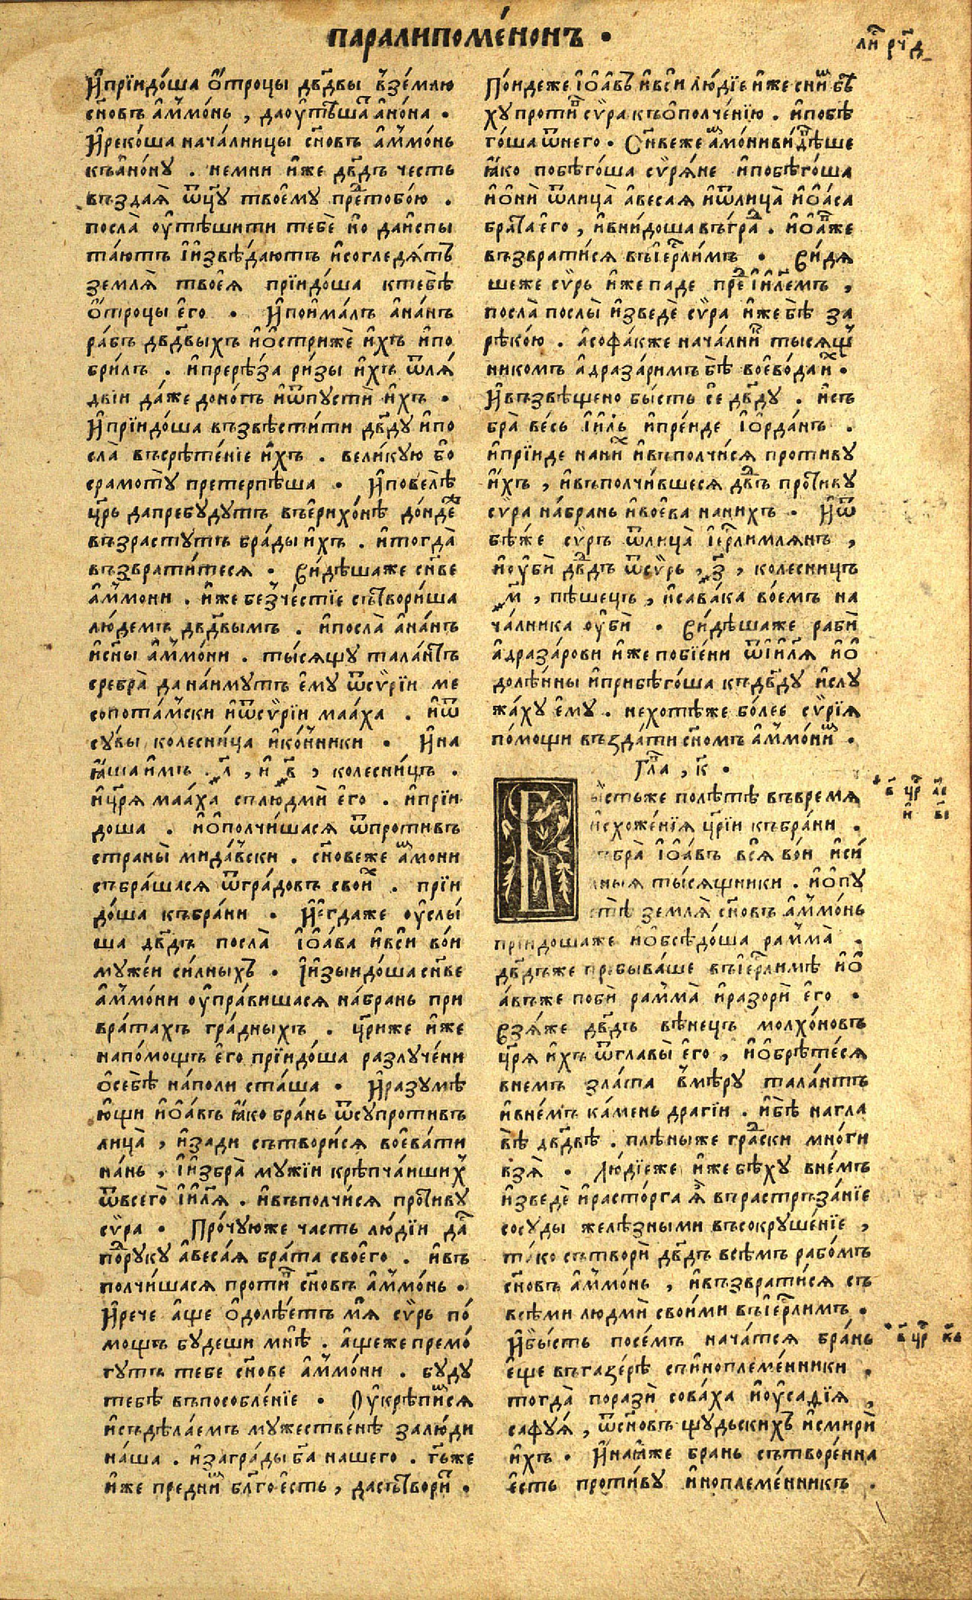 паралипоме́нонъ .
ли́ст рч҃д
И҆прїидо́ша ѻ҆́троцы дв҃дв́ы в̾зе́млю
сн҃о́въ а҆́ммонь , даоу҆тѣ́шатъ а҆но́на .
И҆реко́ша нача́лницы сн҃о́въ а҆́ммонь
къа҆но́ну . немни и҆́же дв҃дъ че́сть
въздая̀ ѿц҃у твое́му пре́дтобо́ю .
посла̀ оу҆тѣ́шити тебѐ но даи҆спы
та́ютъ і҆и҆звѣ́даютъ и҆согледя́тъ
земля̀ твоея̀ прїидо́ша ктебѣ̀
ѻ҆́троцы є҆го̀ . И҆пои҆ма́лъ а҆на́нъ
ра́бъ дв҃дв́ыхъ и҆ѻ҆стриже́ и҆́хъ и҆по
бри́лъ . и҆прерѣ́за ри́зы и҆́хъ ѿля́
двїи да́же доно́гъ и҆ѿпустѝ и҆́хъ .
И҆прїидо́ша възвѣсти́ти дв҃ду и҆по
сла̀ въсрѣ́тенїе и҆́хъ . вели́кую бо
срамоту̀ претерпѣ́ша . И҆повелѣ̀
цр҃ь дапребу́дутъ въє҆рихо́нѣ до́ндеже
възрасту́тъ брады̀ и҆́хъ . и҆тогда̀
възврати́теся . Ви́дѣшаже сн҃ве
а҆́ммони . и҆́же безче́стїе сътвори́ша
лю́демъ дв҃двымъ . и҆посла̀ а҆на́нъ
и҆сн҃ы а҆́ммони . ты́сящу тала́нтъ
сребра̀ да наи́мутъ є҆му̀ ѿсѷрїи ме
сопота́мски и҆ѿсѷрїи маа́ха . и҆ѿ
су́вы колесни́ца и҆ко́нники . И҆на
я҆́ша и҆́мъ л҃ , и҆ в҃ , колесни́цъ .
и҆цр҃я маа́ха слюдмѝ є҆го̀ . и҆прїи
до́ша . и҆ѻ҆полчи́шася ѿпроти́въ
страны̀ мида́вски . сн҃овеже а҆́ммони
събра́шася ѿгра́довъ свои́х . прїи
до́ша къбра́ни . И҆є҆гда́же оу҆слы́
ша дв҃дъ посла̀ і҆ѻ҆а́ва и҆вси́ во́и
муже́й си́лныхъ . І҆и҆зыидо́ша сн҃ве
а҆́ммони оу҆пра́вишася на́брань при
врата́хъ гра́дныхъ . цр҃иже и҆́же
напо́мощъ є҆го̀ прїидо́ша разлуче́ни
ѻ҆себѣ̀ на́поли ста́ша . И҆разумѣ́
ю҆щи и҆ѻ҆а́въ я҆́ко бра́нь ѿсупроти́въ
лица̀ , и҆за́ди сътвори́ся воева́ти
на́нь . І҆и҆збра̀ мужїи крѣпча́йших
ѿвсего̀ і҆и҃ля . и҆въполчи́ся проти́ву
сѷ́ра . Про́чуюже ча́сть лю́дїи да́ст
по́дру́ку а҆веса́я бра́та своего̀ . и҆въ
полчи́шася проти́в сн҃о́въ а҆́ммонь .
И҆рече а҆́ще ѻ҆долѣ́етъ мя̀ сѷ́рь по́
мощъ бу́деши мнѣ̀ . а҆́щеже премо́
гутъ тебе сн҃ове а҆́ммони . бу́ду
тебѣ̀ въпособле́нїе . Оу҆крѣпи́мся
и҆съдѣ́лаемъ му́жественѣ залю́ди
на́ша . и҆загра́ды бг҃а на́шего . гь҃же
и҆́же предни́м бл҃го є҆́сть , да сътвори́т .
По́идеже і҆ѻ҆а́въ и҆вси́ лю́дїе и҆́же сни́м бѣ́
ху проти́в сѷ́ра къѻ҆полче́нїю . и҆побѣ
го́ша ѿнего̀ . Сн҃веже а҆́ммони ви́дѣше
я҆́ко побѣго́ша сѷря́не и҆побѣго́ша
и҆ѻ҆нѝ ѿлица̀ а҆веса́я и҆ѿлица̀ и҆ѻ҆а́са
бра́та є҆го̀ , и҆вни́доша въгра́д . и҆ѻ҆а́вже
възврати́ся въі҆ер҃ли́мъ . Ви́дя
шеже сѷ́рь и҆́же паде пре́д і҆и҃лемъ ,
посла̀ послы̀ и҆зведѐ сѷ́ра и҆́же бѣ̀ за
рѣко́ю . а҆софа́кже нача́лник ты́сящ
никомъ а҆дразари́мъ бѣ̀ воево́да и́х .
И҆възвѣ́щено бы́сть се дв҃ду . и҆съ
бра̀ ве́сь і҆и҃ль и҆пре́иде і҆ѻ҆рда́нъ .
и҆прїи́де нани́х и҆въполчи́ся проти́ву
и҆́хъ , и҆въполчи́вшеся дв҃дъ проти́ву
сѷ́ра на́брань и҆воева̀ нани́хъ . И҆ѿ
бѣ́же сѷ́ръ ѿлица̀ і҆ер҃ли́млянъ ,
и҆оу҆бѝ дв҃дъ ѿсѷ́рь , з҃ , колесни́цъ
м҃ , пѣ́шецъ , и҆сава́ка во́емъ на
ча́лника оу҆бѝ . Ви́дѣшаже рабѝ
а҆дразаро́ви и҆́же побїе́ни ѿі҆и҃ля и҆ѻ҆
долѣ́нны и҆прибѣго́ша къдв҃ду и҆слу
жа́ху є҆му̀ . нехотѣ́же бо́лее сѷ́рїя
по́мощи въздати сн҃омъ а҆́ммоним .
Гла́ , к҃ .
Бы́стьже полѣ́тѣ въвре́мя
и҆схоже́нїя цр҃їи къбра́ни .
събра̀ і҆ѻ҆а́въ вся̀ во́и и҆си́
лныя ты́сящники . и҆ѻ҆пу
стѣ̀ земля̀ сн҃о́въ а҆́ммонь
прїидо́шаже и҆ѻ҆бсѣдо́ша рамма̀ .
дв҃дъже пребыва́ше въі҆ер҃ли́мѣ и҆ѻ҆
а́въже побѝ рамма̀ и҆разорѝ є҆го̀ .
Взя́же дв҃дъ вѣне́цъ молхо́новъ
цр҃я и҆́хъ ѿглавы̀ є҆го̀ , и҆ѻ҆брѣ́теся
внемъ зла́та в̾мѣ́ру тала́нтъ
и҆вне́мъ ка́мень драгїи . и҆бѣ̀ нагла
вѣ̀ дв҃двѣ . плѣ́ныже гра́дски мно́ги
взя̀ . Лю́дїеже и҆́же бѣ́ху вне́мъ
и҆зведѐ и҆расто́рга я҆̀ впрастръза́нїе
сосу́ды желѣ́зными въсокруше́нїе ,
та́ко сътворѝ дв҃дъ всѣ́мъ рабо́мъ
сн҃о́въ а҆́ммонь , и҆възврати́ся съ
всѣ́ми людмѝ свои́ми въі҆ер҃ли́мъ .
И҆бы́сть посе́мъ нача́тся бра́нь
є҆ще въгазе́рѣ съи҆ноплеме́нники .
тогда̀ поразѝ сова́ха и҆оу҆сади́я ,
сафу́я , ѿсн҃овъ щу́дьскихъ и҆смирѝ
и҆́хъ . И҆на́яже бра́нь сътворе́нна
є҆́сть проти́ву и҆ноплеме́нникъ .
в҃ цр҃ аі
и҆ в҃і
в҃ цр҃ к҃а